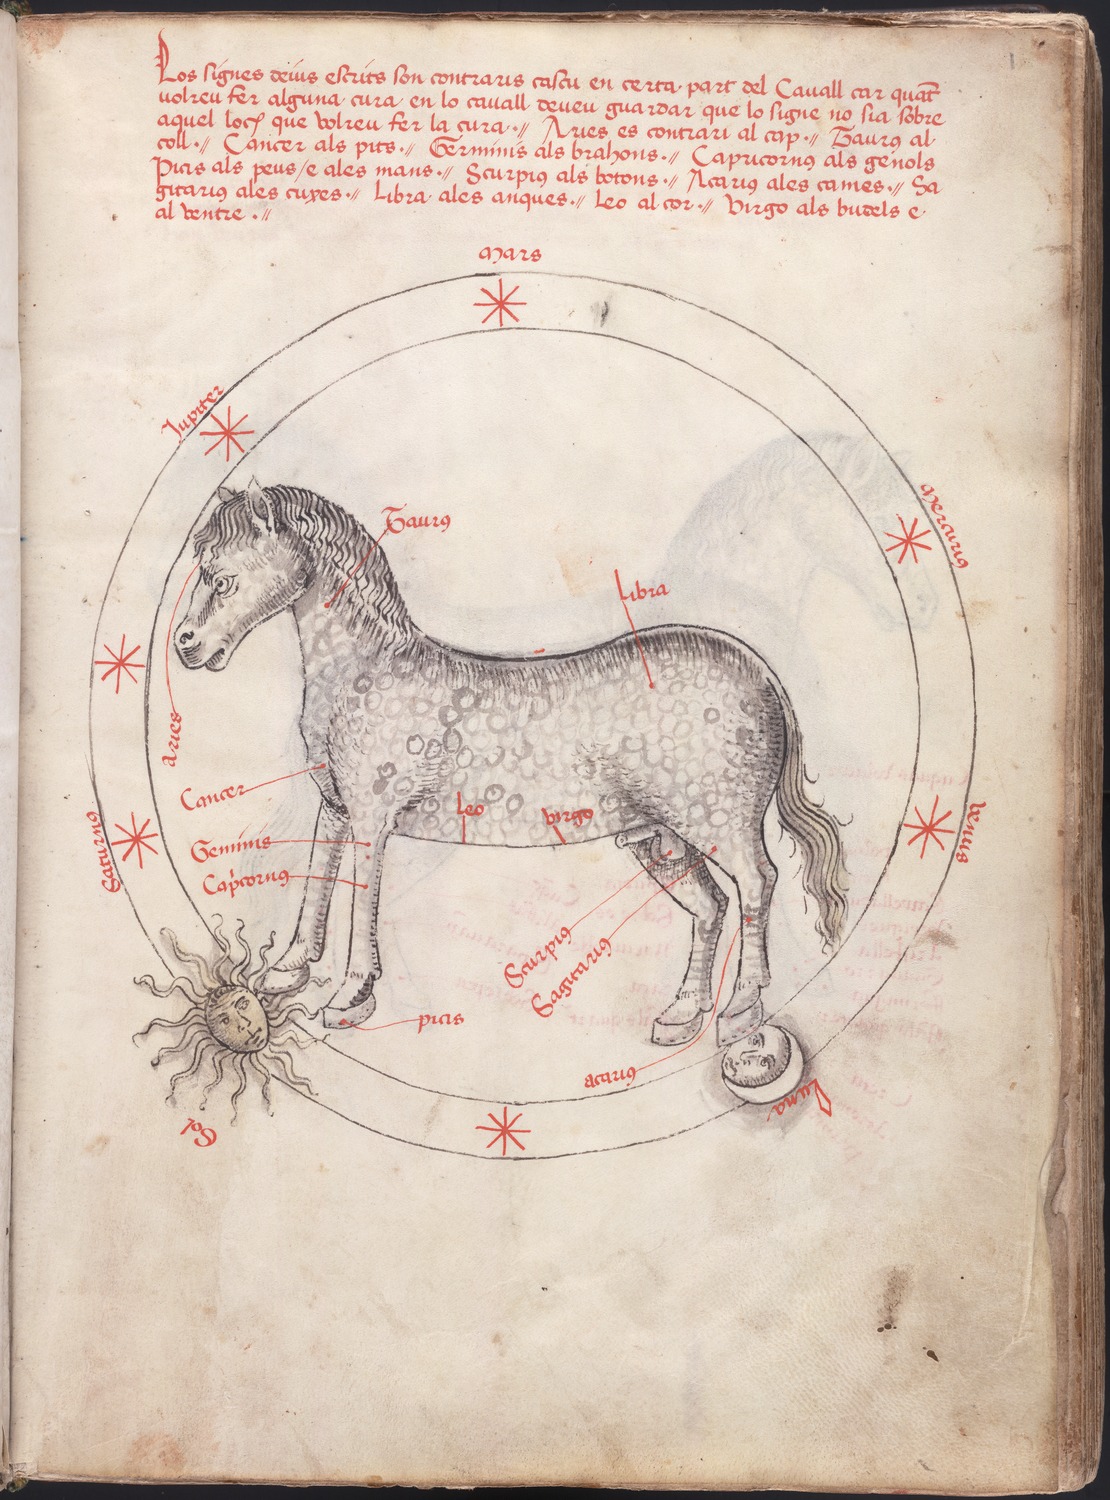 Los signes deius escrits son contraris cascu en certa part del Cauall car quāt
uolreu fer alguna cura en lo cauall deueu guardar que lo signe no sia sobre
aquel loch que volreu fer la cura·// Aries es contrari al cap·// Taurꝰ al
coll·// Cancer als pits·// Geeminis als brahons·// Capricornꝰ als genols
Picis als peus/e ales mans·// Scurpiꝰ als botons·// Acariꝰ ales cames·// Sa
gitariꝰ ales cuxes·// Libra ales anques·// Leo al cor·// Virgo als budels e
al ventre·//
Mars
Jupiter
Mercuriꝰ
Taurꝰ
Libra
Aries
Cancer
Leo
Virgo
Saturnꝰ
Venus
Geminis
Cap̄cornꝰ
Scurpiꝰ
Sagitariꝰ
picis
acariꝰ
Sol
Luna